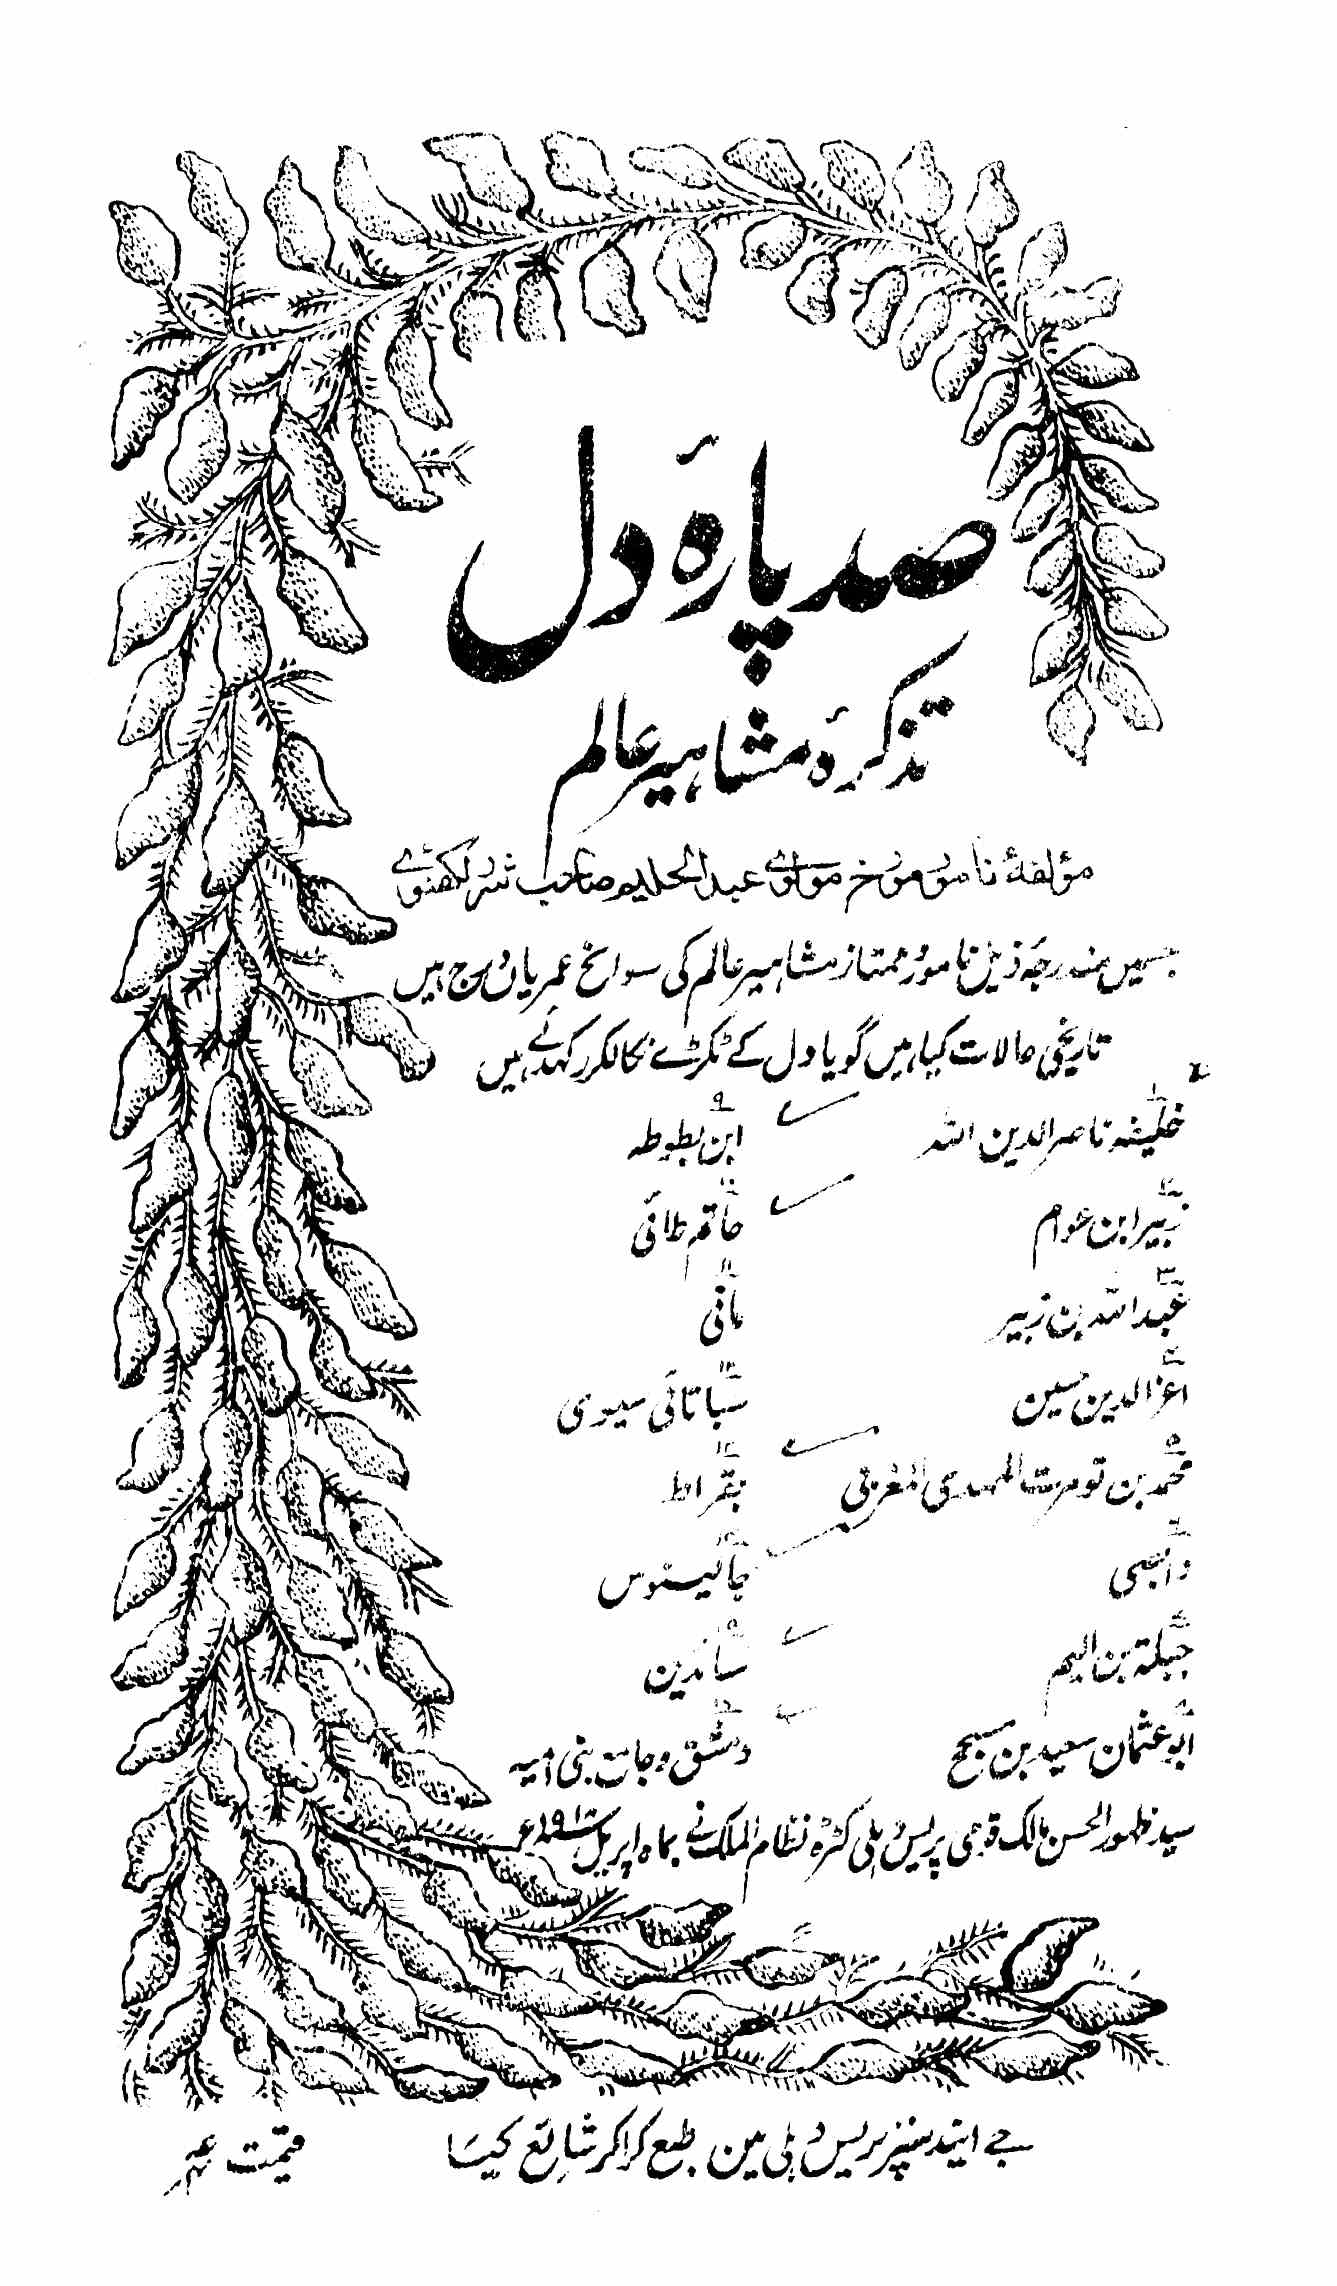 صد پارۂ دل
تذکرۂ مشاہیر عالم
مؤلفۂ نامور مورخ مولوی عبدالحلیم صاحب شرر لکھنوی
جسمیں مندرجہ ذیل نامور ممتاز مشاہیر عالم کی سوانح عمریاں درج ہیں
تاریخی حالات کیا ہیں گویا دل کے ٹکڑے نکالکر رکھدئے ہیں
۱ خلیفہ ناصر الدین اللہ
۲ زبیر ابن عوام
۳ عبد اللہ بن زبیر
۴ اعز الدین حسین
۵ محمد بن تومرت المہدی المغربی
۶
۷ جبلۃ بن الیہم
۸ ابو عثمان سعید بن مسجح
۹ ابن بطوطہ
۱۰ حاتم طائی
۱۱ مانی
۱۲ سباتائی سیوی
۱۳ بقراط
۱۴ جالینوس
۱۵
۱۶ دمشق و جامع بنی امیہ
سید ظہور الحسن مالک قومی پریس دہلی کٹرہ نظام الملک نے بماہ اپریل
جے اینڈ سنز پریس دہلی مین طبع کراکر شائع کیا
قیمت